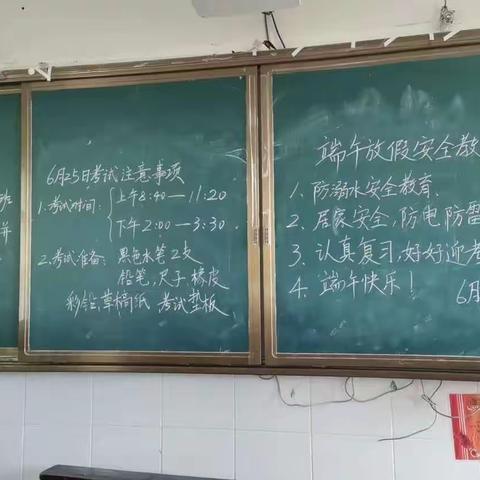 班
并
6月25日考试注意事项
1.考试时间: 上午8:40—11:20
下午2:00—3:30.
2.考试准备: 黑色水笔2支
铅笔,尺子,橡皮
彩铅,草稿纸 考试垫板
端午放假安全教
1.防溺水安全教育.
2.居家安全,防电防雷
3.认真复习,好好迎考
4.端午快乐!
6月